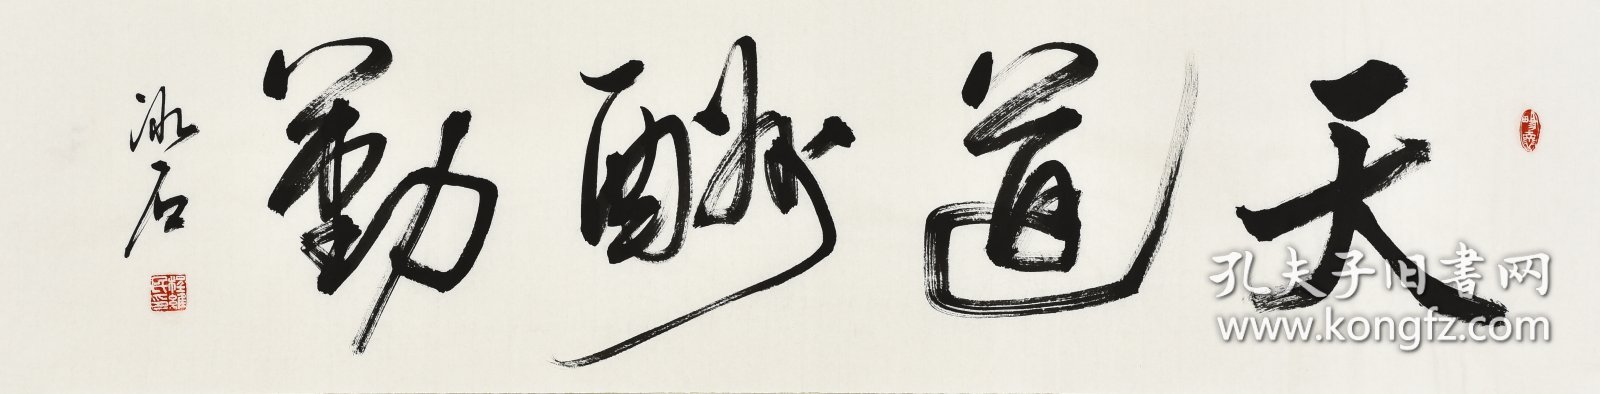 天道酬勤
冰石
孔夫子旧书网
www.kongfz.com